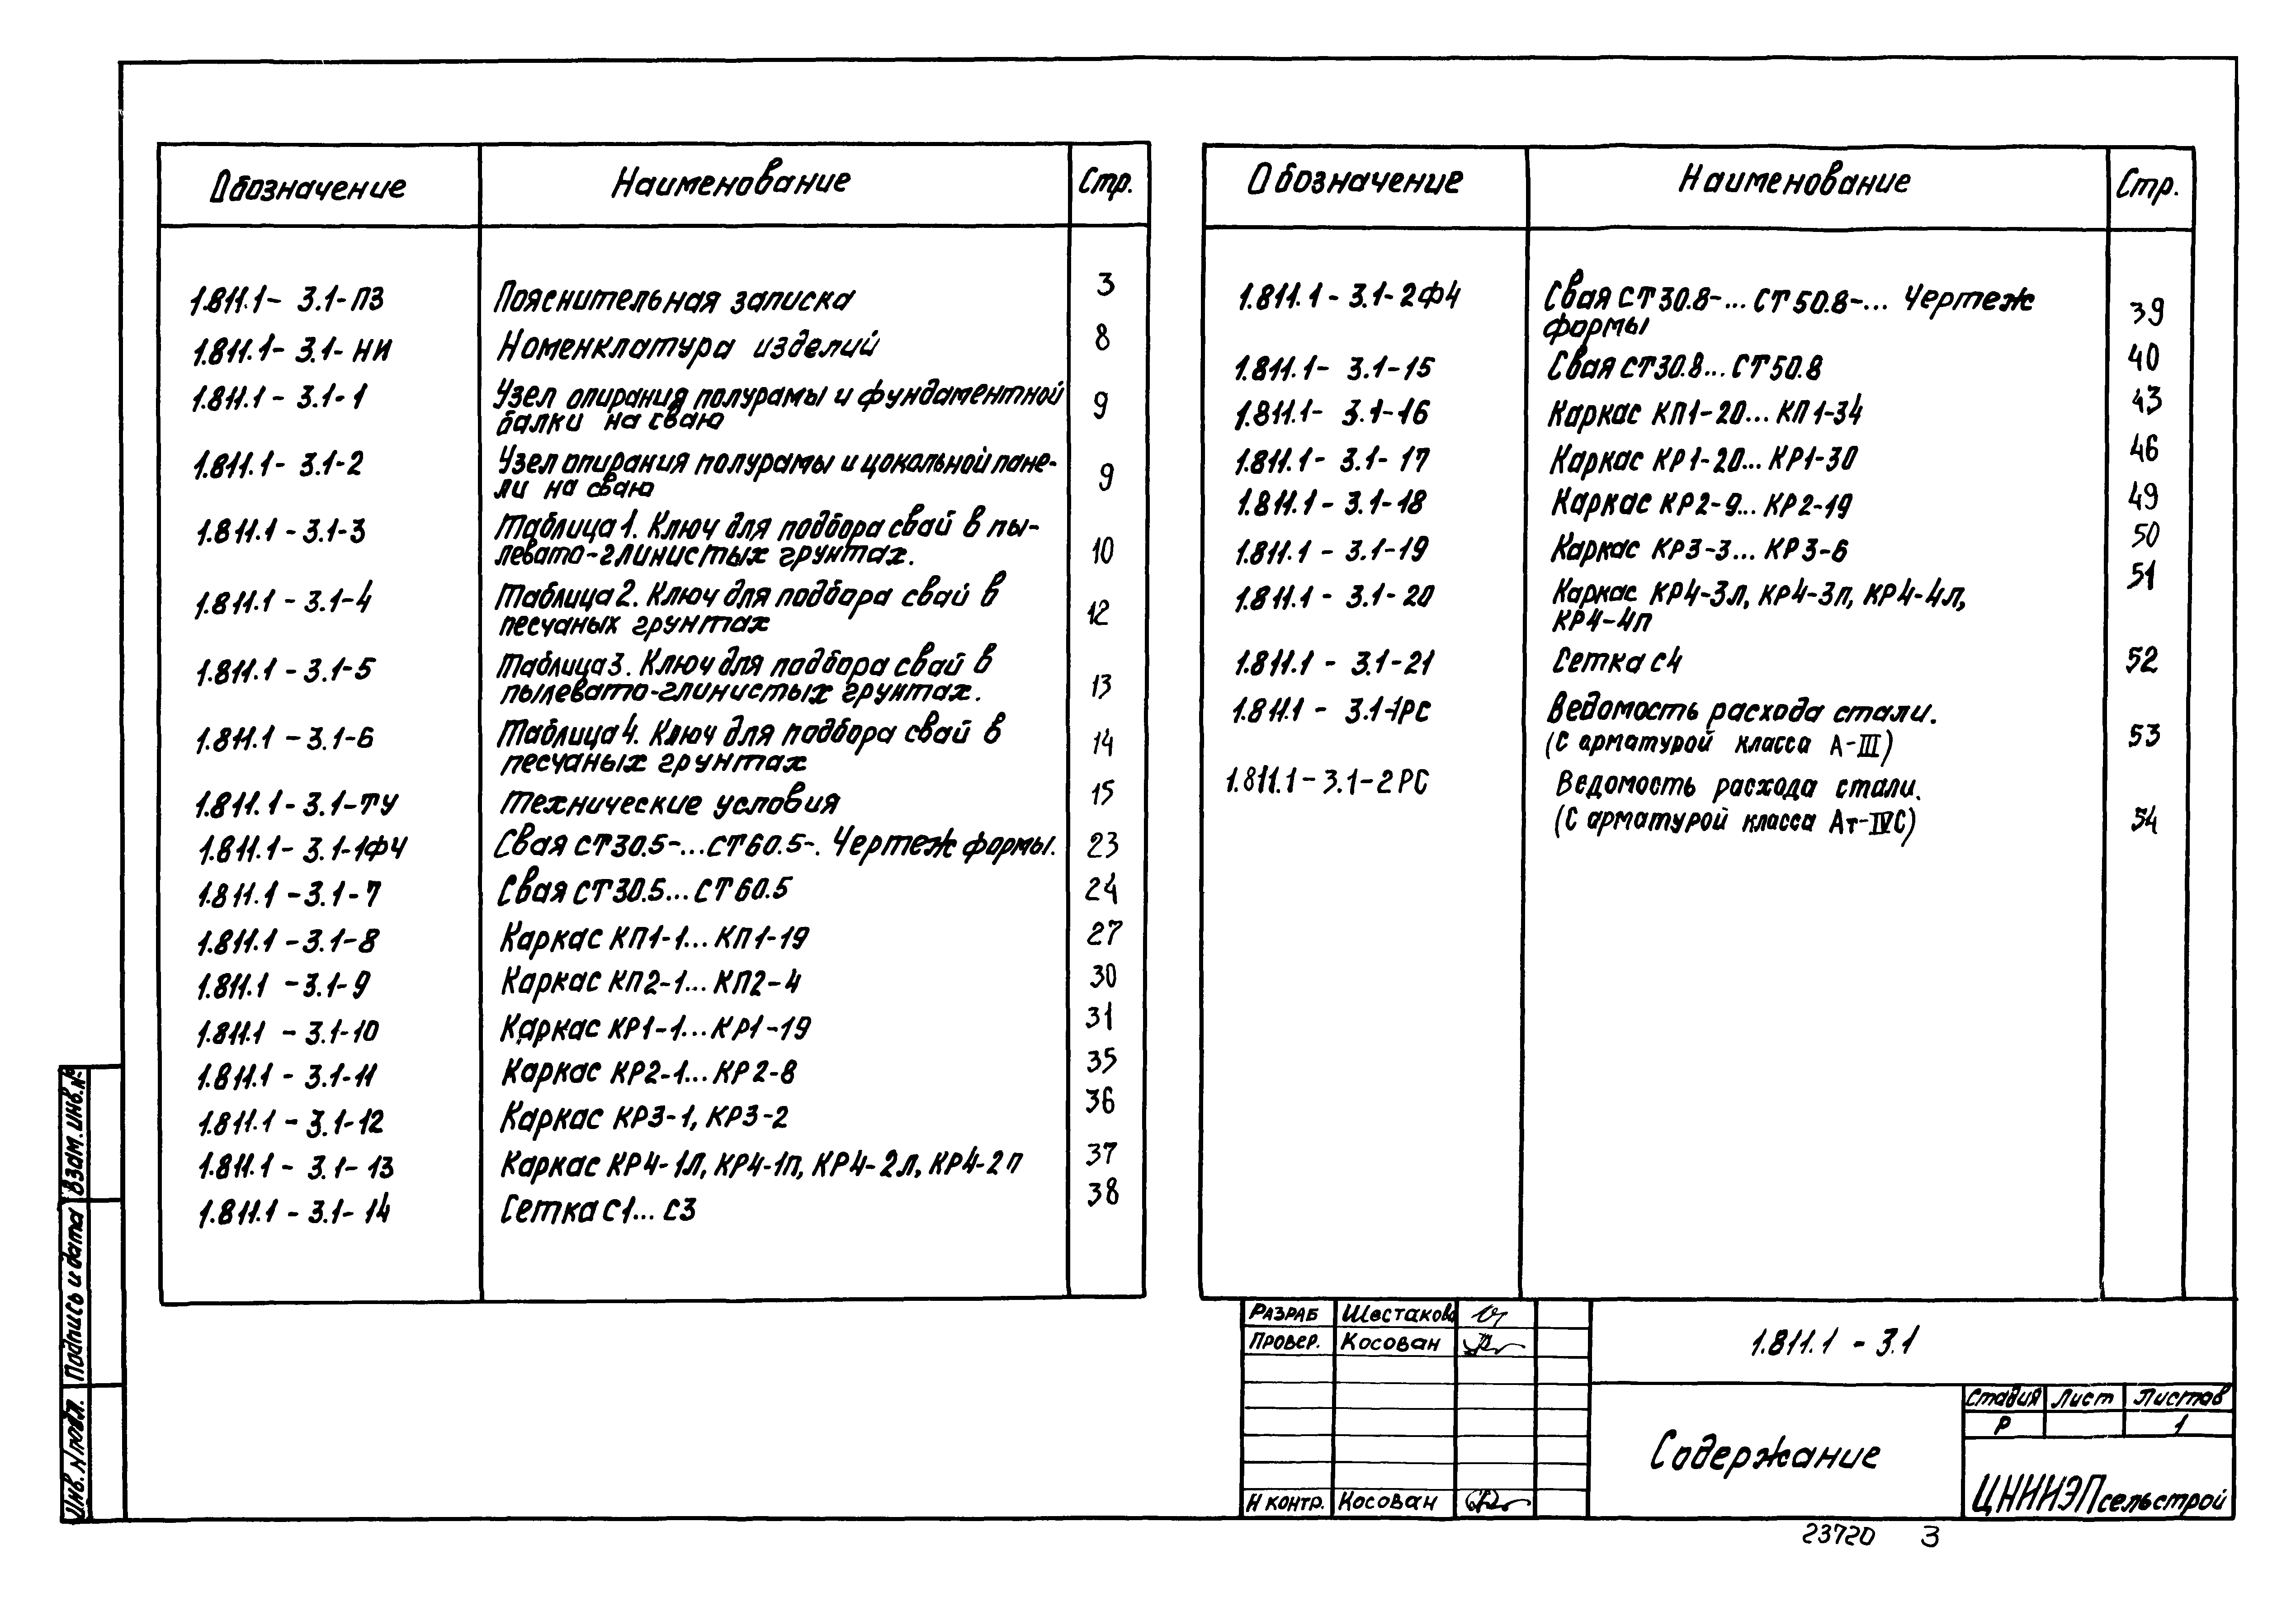 Обозначение Наименование Стр.
1.811.1-3.1-ПЗ Пояснительная записка 3
1.811.1-3.1-НИ Номенклатура изделий 8
1.811.1-3.1-1 Узел опирания полурамы и фундаментной
балки на сваю 9
1.811.1-3.1-2 Узел опирания полурамы и цокольной пане-
ли на сваю 9
1.811.1-3.1-3 Таблица 1. Ключ для подбора свай в пы-
левато-глинистых грунтах. 10
1.811.1-3.1-4 Таблица 2. Ключ для подбора свай в
песчаных грунтах 12
1.811.1-3.1-5 Таблица 3. Ключ для подбора свай в
пылевато-глинистых грунтах. 13
1.811.1-3.1-6 Таблица 4. Ключ для подбора свай в
песчаных грунтах 14
1.811.1-3.1-ТУ Технические условия 15
1.811.1-3.1-1ФЧ Свая СТ30.5-...СТ60.5-. Чертеж формы. 23
1.811.1-3.1-7 Свая СТ30.5...СТ60.5 24
1.811.1-3.1-8 Каркас КП1-1...КП1-19 27
1.811.1-3.1-9 Каркас КП2-1...КП2-4 30
1.811.1-3.1-10 Каркас КР1-1...КР1-19 31
1.811.1-3.1-11 Каркас КР2-1...КР2-8 35
1.811.1-3.1-12 Каркас КР3-1, КР3-2 36
1.811.1-3.1-13 Каркас КР4-1Л, КР4-1П, КР4-2Л, КР4-2П 37
1.811.1-3.1-14 Сетка С1...С3 38
Обозначение Наименование Стр.
1.811.1-3.1-2ФЧ Свая СТ30.8-...СТ50.8-... Чертеж
формы 39
1.811.1-3.1-15 Свая СТ30.8...СТ50.8 40
1.811.1-3.1-16 Каркас КП1-20...КП1-34 43
1.811.1-3.1-17 Каркас КР1-20...КР1-30 46
1.811.1-3.1-18 Каркас КР2-9...КР2-19 49
1.811.1-3.1-19 Каркас КР3-3...КР3-6 50
1.811.1-3.1-20 Каркас КР4-3Л, КР4-3П, КР4-4Л, 51
КР4-4П
1.811.1-3.1-21 Сетка С4 52
1.811.1-3.1-1РС Ведомость расхода стали.
(С арматурой класса А-III) 53
1.811.1-3.1-2РС Ведомость расхода стали.
(С арматурой класса Ат-IVС) 54
Взам. инв. №
Подпись и дата
Инв. № подл.
Разраб Шестаков
Провер. Косован
Н контр. Косован
1.811.1-3.1
Содержание
Стадия Лист Листов
Р 1
ЦНИИЭПсельстрой
23720 3